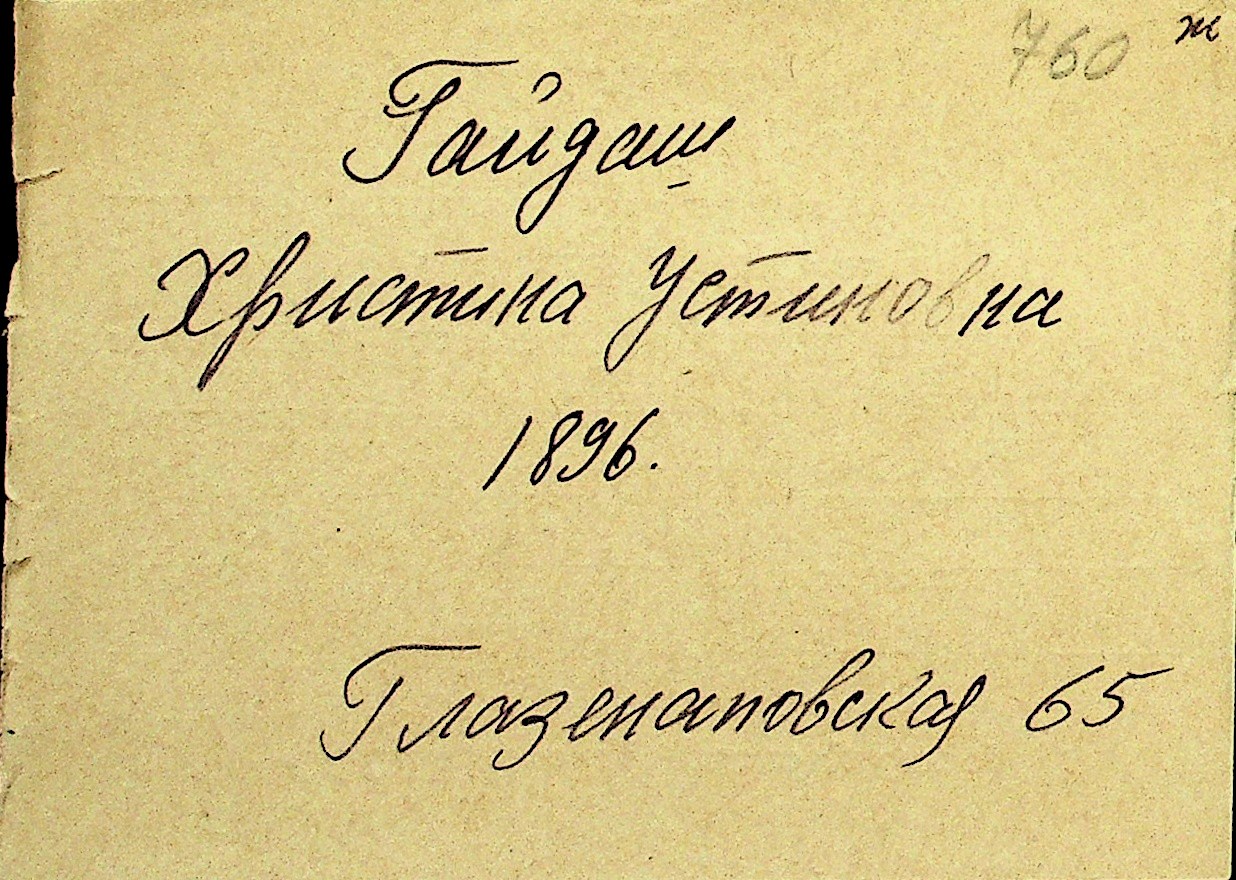 760 ж
Гайдаш
Христина Устиновна
1896.
Глазенаповская 65